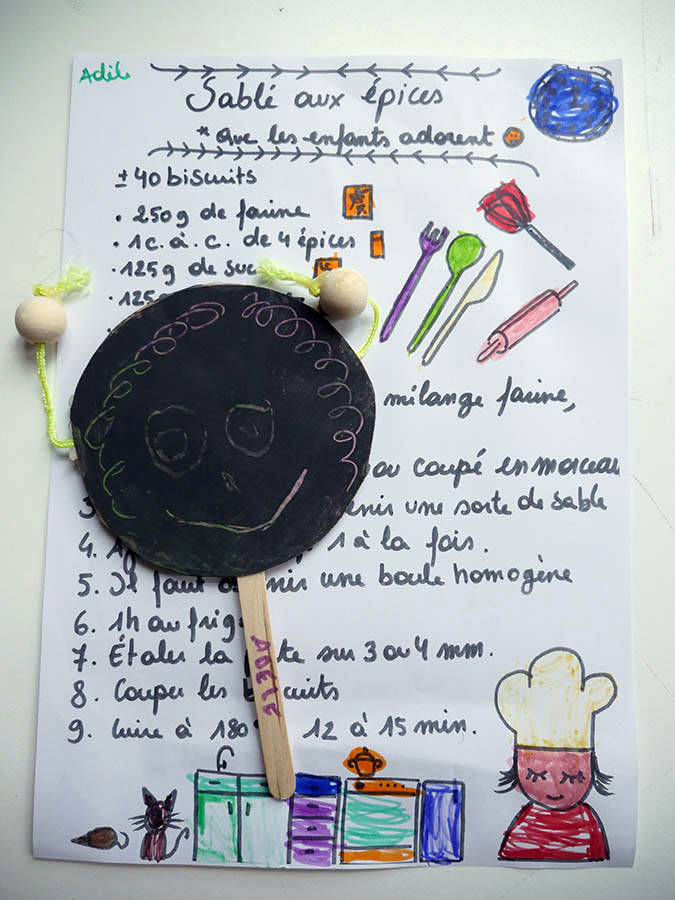 Adèle
Sablé aux épices
* que les enfants adorent
± 40 biscuits
• 250g de farine
• 1c. à. c. de 4 épices
• 125g de suc
• 125
mélange farine,
ou coupé en morceau
3 enir une sorte de sable
4. A 1 à la fois.
5. Il faut o enir une boule homogène
6. 1h au frig
7. Étaler la te sur 3 ou 4 mm.
8. Couper les biscuits
9. Cuire à 180° 12 à 15 min.
ADÈLE